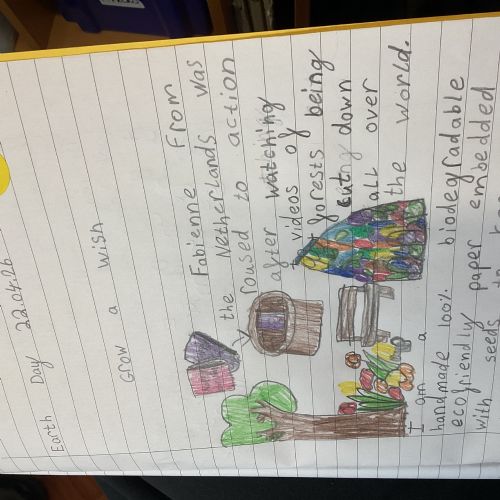 Earth Day 22.04.26
Grow a wish
Fabienne From
the Netherlands was
roused to action
after watching
videos of
forests being
cut down
all over
the world.
I am a
handmade 100% biodegradable
ecofriendly paper embedded
with seeds